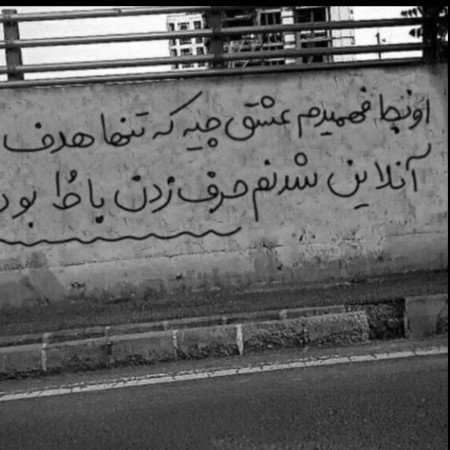 اونجا فهمیدم عشق چیه که تنها هدف
آنلاین شدنم حرف زدن با تُ بود